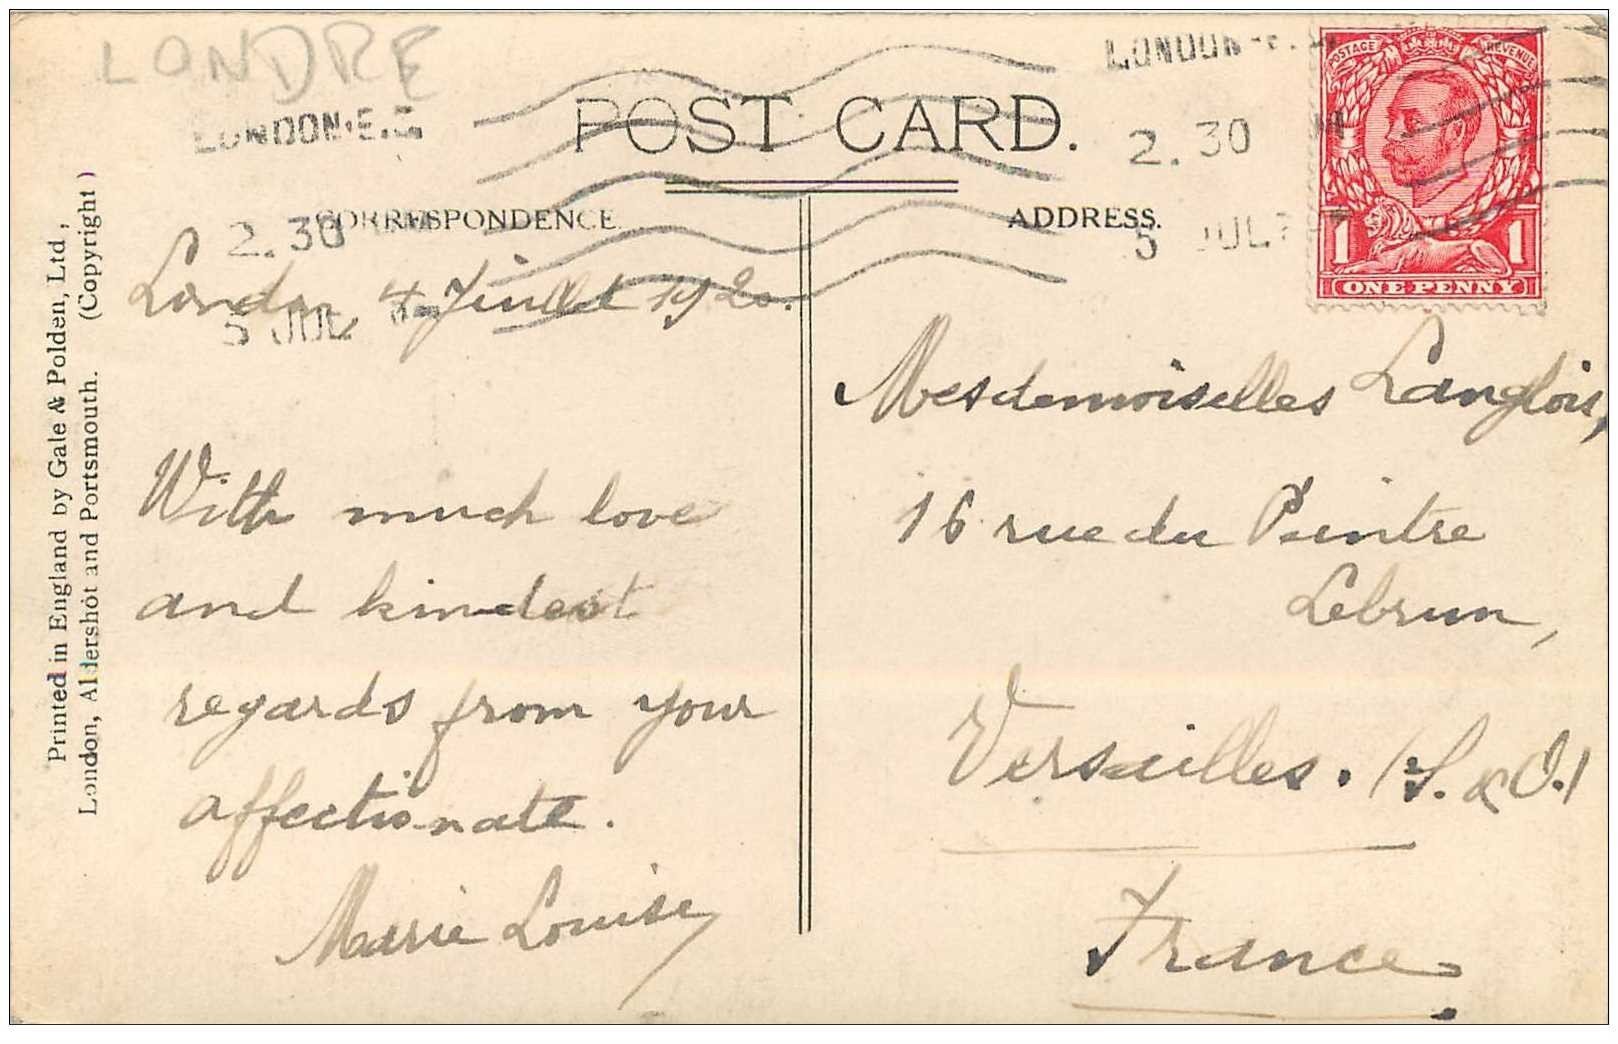 LONDRE
LONDON.E.C
LONDON
2.30
2.30
5 JUL
5 JUL
POSTAGE REVENUE
1 1
ONE PENNY
POST CARD.
CORRESPONDENCE.
ADDRESS.
London, 4 Juillet 1920.
With much love
and kindest
regards from your
affectionate.
Marie Louise
Mesdemoiselles Langlois,
16 rue du Peintre
Lebrun,
Versailles. (S. & O.)
France
Printed in England by Gale & Polden, Ltd,
London, Aldershot and Portsmouth. (Copyright)